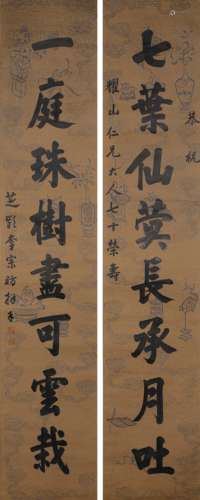 恭祝
七葉仙蓂長承月吐
耀山仁兄大人七十榮壽
一庭珠樹盡可雲栽
芝齡李宗昉拜手